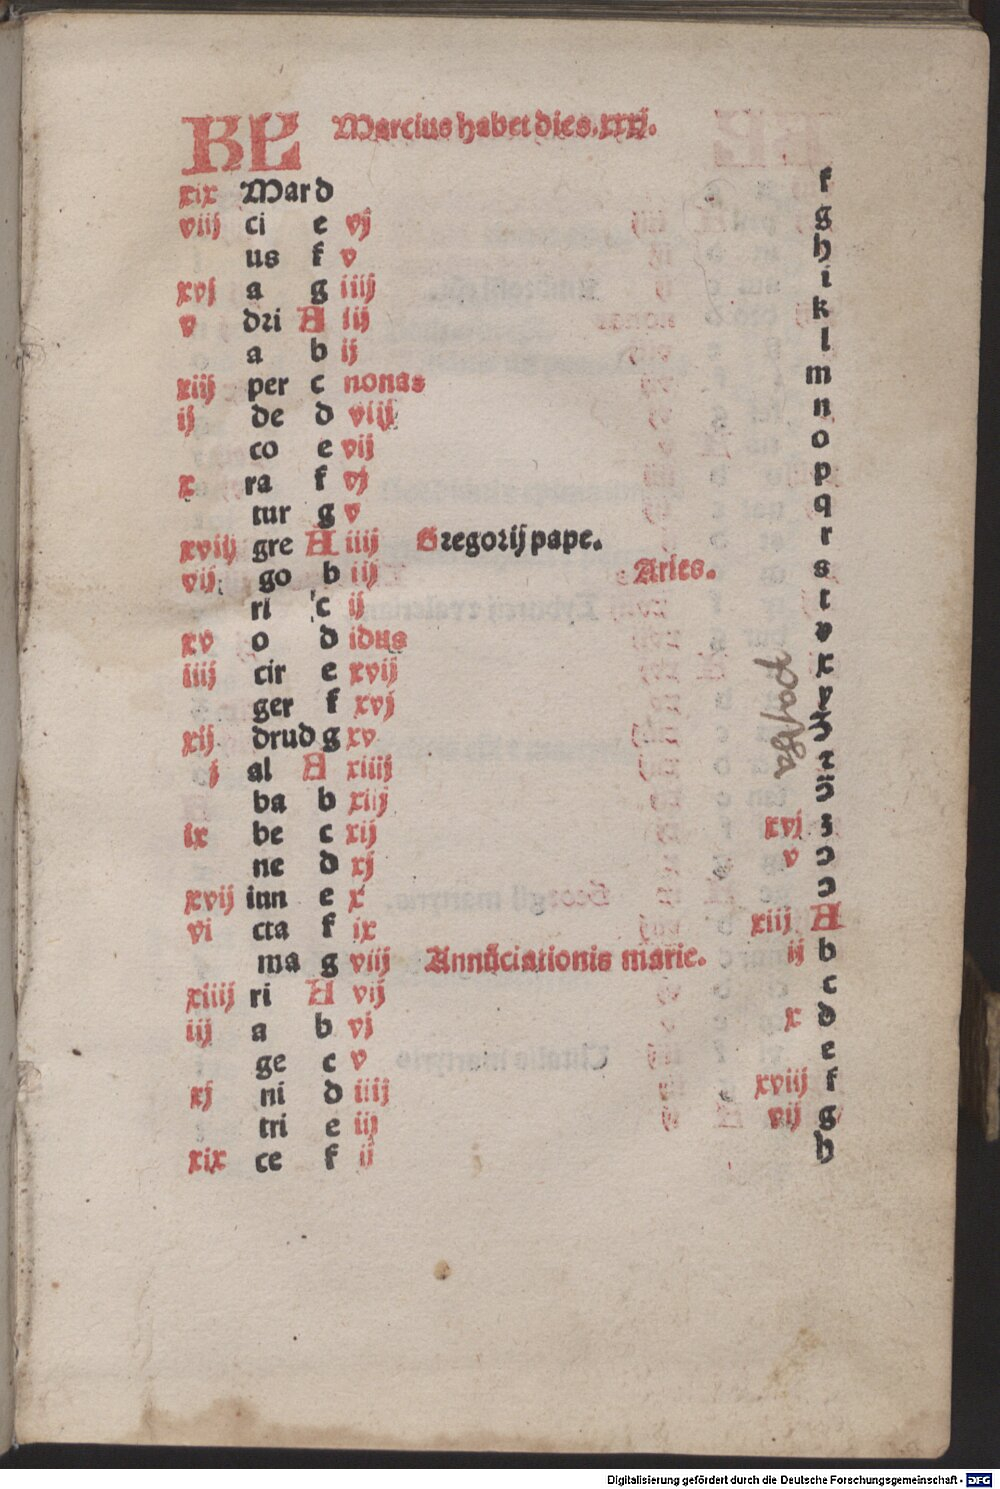 KL Marcius habet dies.xxxj.
xix Mar d f
viij ci e vj g
us f v h
xvj a g iiij i
v dri A iij k
a b ij l
xiij per c nonas m
ij de d viij n
co e vij o
x ra f vj p
tur g v q
xviij gre A iiij Gregorij pape. r
vij go b iij Aries. s
ri c ij t
xv o d idus v
iiij cir e xvij x
ger f xvj y
xij drud g xv ʒ
j al A xiiij
ba b xiij
ix be c xij xvj
ne d xj v ɔ
xvij inn e x ɔ
vi cta f ix xiij A
ma g viij Annūciationis marie. ij b
xiiij ri A vij c
iij a b vj x d
ge c v e
xj ni d iiij xviij f
tri e iij vij g
xix ce f ij h
Digitalisierung gefördert durch die Deutsche Forschungsgemeinschaft - DFG